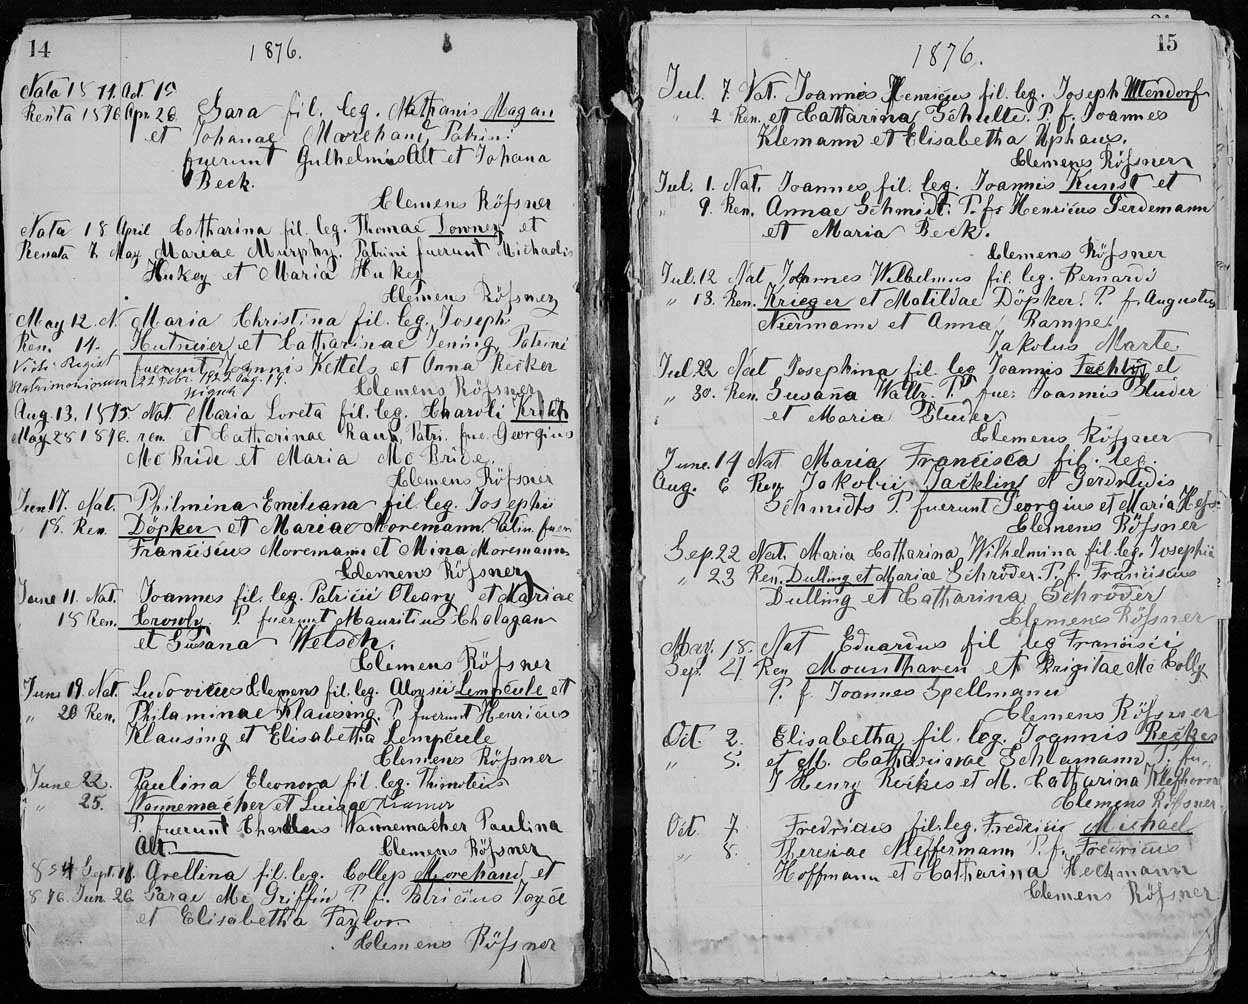 14
1876.
Nata 1871. Oct. 1
Renta 1876 Apr. 26 Sara fil. leg. Nathanis Magan
et Johanae Morehand, Patrini
fuerunt Gulhelmus Alt et Johana
Beck.
Clemens Röfsner
Nata 18 April Catharina fil. leg. Thomae Downey et
Renata 7. May Mariae Murphy. Patrini fuerunt Michaelis
Hukey et Maria Hukey
Clemens Röfsner
May 12. N. Maria Christina fil. leg. Joseph
Ren. 14. et Catharinae Tening, Patrini
fuerunt Joannis Kettels et Anna Recker
Vide Regist
Matrimoniorum 22 Febr. pag. 19.
Clemens Röfsner
Aug. 13, 1875 Nat. Maria Loreta fil. leg. Charoli
May 28 1876. ren. et Catharinae Rauh, Patri. fue. Georgius
Mc Bride et Maria Mc Bride.
Clemens Röfsner
Jun 17. Nat. Philmina Emileana fil. leg. Josephi
" 18. Ren. Döpker et Mariae Moremann, Patrin. fuer
Franciscus Moremann et Mina Moremann
Clemens Röfsner
June 11. Nat. Joannes fil. leg. Patricii Oleary et Mariae
18 Ren. Crowly. P. fuerunt Mauritius Chalagan
et Susana Welsch.
Clemens Röfsner
June 19. Nat. Ludovicus Clemens fil. leg. Aloysii Lempcule et
" 20 Ren. Philaminae Klausing. P. fuerunt Henricus
Klausing et Elisabetha Lempcule
Clemens Röfsner
June 22. Paulina Eleonora fil. leg. Thimoteus
" 25. Wannemacher et Luisae Kramer
P. fuerunt Charolus Wannemacher Paulina
Alt.
Clemens Röfsner
Sept. 18. Orellina fil. leg. Collep Morehand et
876. Jun. 26 Sarae Mc Griffin P. f. Patricius Joyce
et Elisabetha Taylor
Clemens Röfsner
15
1876.
Jul. 7. Nat. Joannes Henricus fil. leg. Joseph Utendorf
" 7 Ren. et Catharina Schulte. P. f. Joannes
Klemann et Elisabetha Uphaus.
Clemens Röfsner
Jul. 1. Nat. Joannes fil. leg. Joannis Kunst et
" 9. Ren. Annae Schmidt. P. fr Henricus Gerdemann
et Maria Beck.
Clemens Röfsner
Jul. 12 Nat Johnnes Wilhelmus fil. leg. Bernardi
" 13. Ren. Krieger et Matildae Döpker. P. f. Augustus
Niermann et Anna Rampe.
Jakolus Marte
Jul. 22 Nat Josephina fil. leg Joannis et
" 30. Ren. Susana Waltr. P. fue: Joannis Studer
et Maria Studer
Clemens Röfsner
June. 14 Nat Maria Francisca fil. leg.
Aug. 6 Ren Jakobi Jacklin et Gerdrudis
Schmidts P. fuerunt Georgius et Maria Hefs
Clemens Röfsner
Sep. 22 Nat. Maria Catharina Wilhelmina fil. leg. Josephi
" 23 Ren. Dulling et Mariae Schröder. P. f. Franciscus
Dulling et Catharina Schröder
Clemens Röfsner
May. 18. Nat Eduardus fil leg Francisci
Sep. 27. Ren Mounthaven et Brigitae Mc Colly
P. f. Joannes Spellmann
Clemens Röfsner
Oct 2. Elisabetha fil. leg. Joannis Reckes
" 5. et M. Catharinae Schlamann, P. fu.
J Henry Reckes et M. Catharina
Clemens Röfsner.
Oct. 7 Fredricus fil. leg. Fredrici Michael
" 8. Theresiae Meffermann P. f. Fredricus
Hoffmann et Catharina Heckmann
Clemens Röfsner